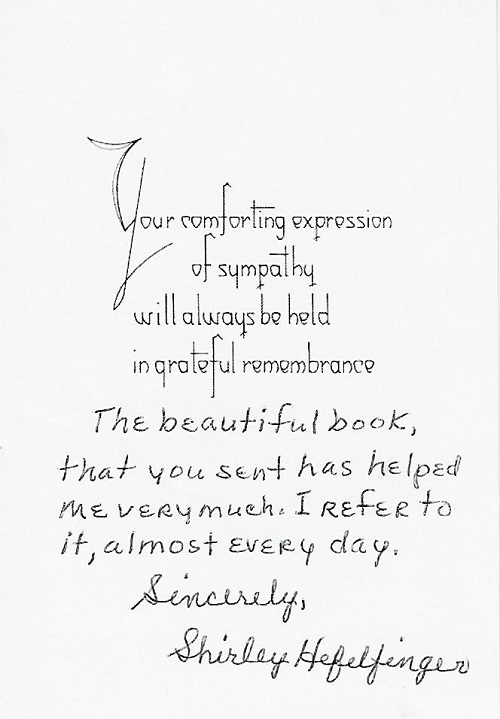 Your comforting expression
of sympathy
will always be held
in grateful remembrance
The beautiful book,
that you sent has helped
me very much. I refer to
it, almost every day.
Sincerely,
Shirley Hefelfinger